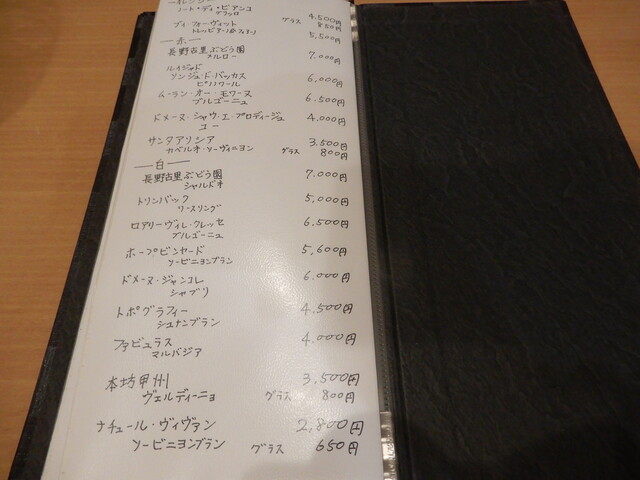 ーオレンジー
ノート・ディ・ビアンコ 4,500円
グラッロ グラス 850円
ブイ・フォーヴィット 5,500円
トレッビアーノ
ー赤ー
長野古里ぶどう園 7,000円
メルロー
ルイジャド
ソンジュ・ド・バッカス 6,000円
ピノノワール
ムーラン・オー・モワーヌ 6,500円
ブルゴーニュ
ドメーヌ・シャウ・エ・プロディージュ 4,000円
ユー
サンタアリシア 3,500円
カベルネ・ソーヴィニヨン グラス 800円
ー白ー
長野古里ぶどう園 7,000円
シャルドネ
トリンバック 5,000円
リースリング
ロアリーヴィレ・クレッセ 6,500円
ブルゴーニュ
ホープビンヤード 5,600円
ソービニヨンブラン
ドメーヌ・ジャンコレ 6,000円
シャブリ
トポグラフィー 4,500円
シュナンブラン
ファビュラス 4,000円
マルバジア
本坊甲州 3,500円
ヴェルディーニョ グラス 800円
ナチュール・ヴィヴァン 2,800円
ソービニヨンブラン グラス 650円